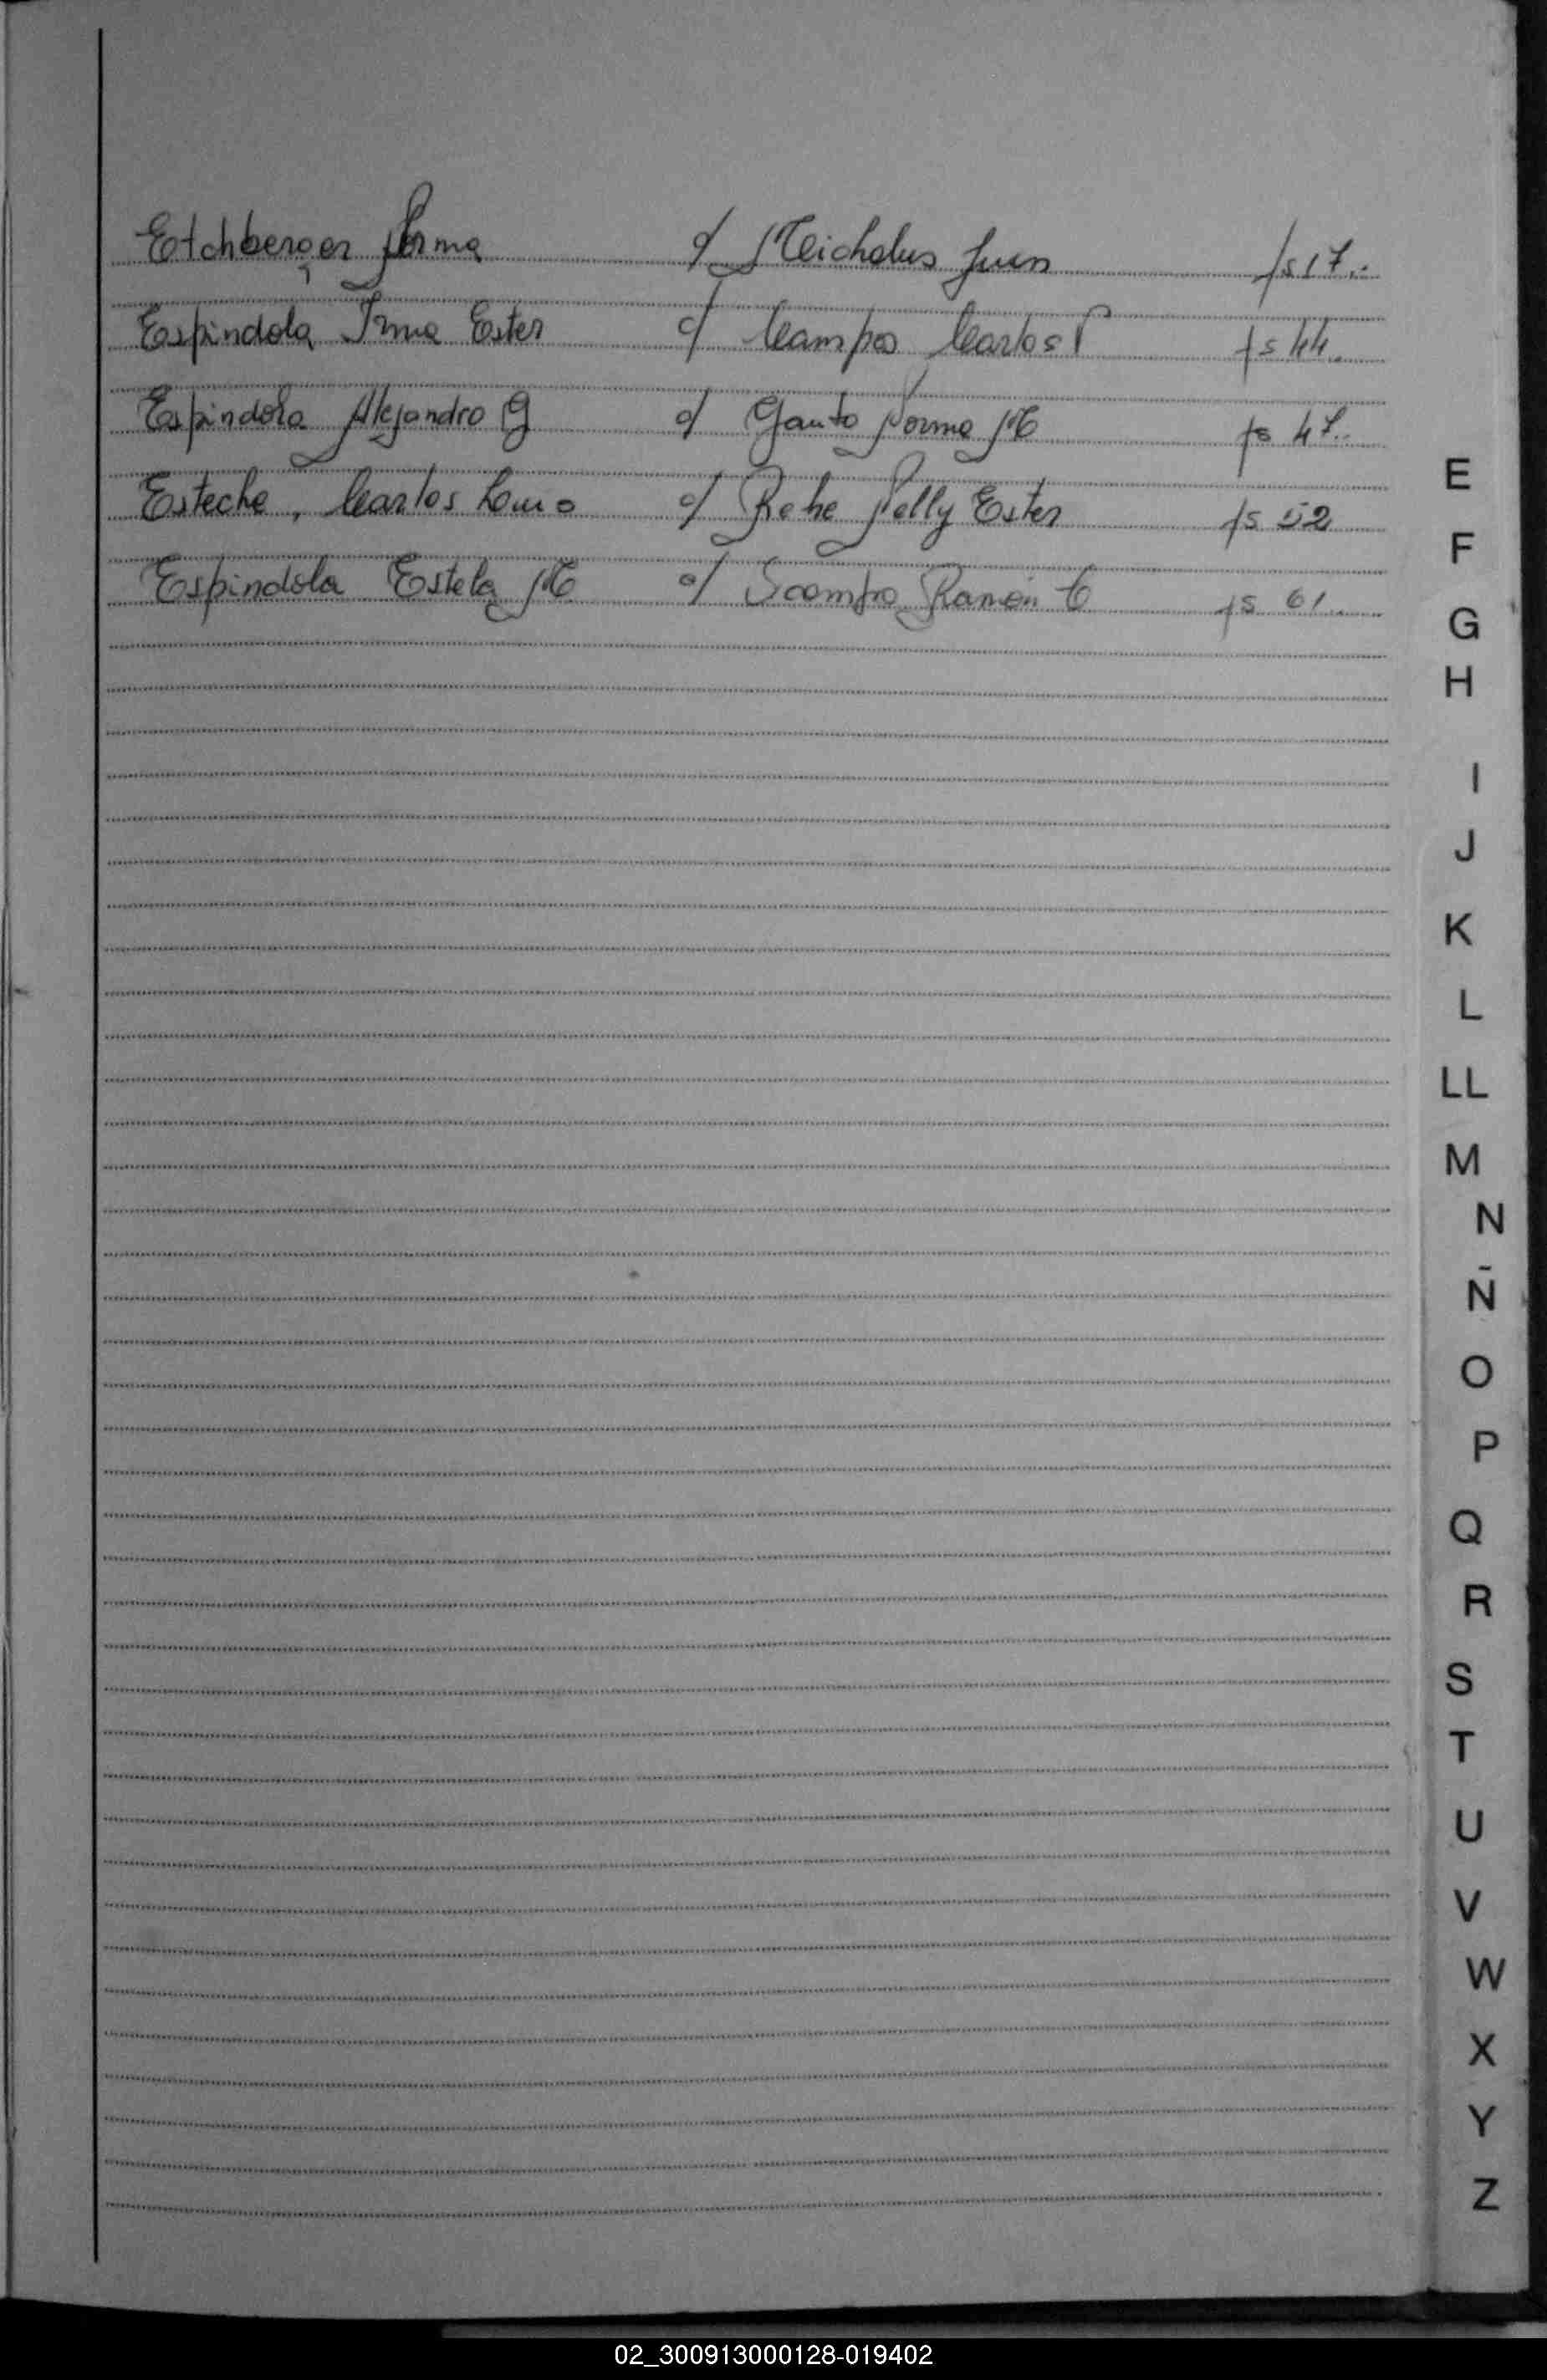 Etchberger Norma c/ Meichelus Juan fs 17..
Espindola Irma Ester c/ Campos Carlos P fs 44.
Espindola Alejandro G c/ Gauto Norma M fs 47..
Esteche, Carlos Luis c/ Rehe Nelly Ester fs 52
Espindola Estela M c/ Ramón C fs 61..
E
F
G
H
I
J
K
L
LL
M
N
Ñ
O
P
Q
R
S
T
U
V
W
X
Y
Z
02_300913000128-019402